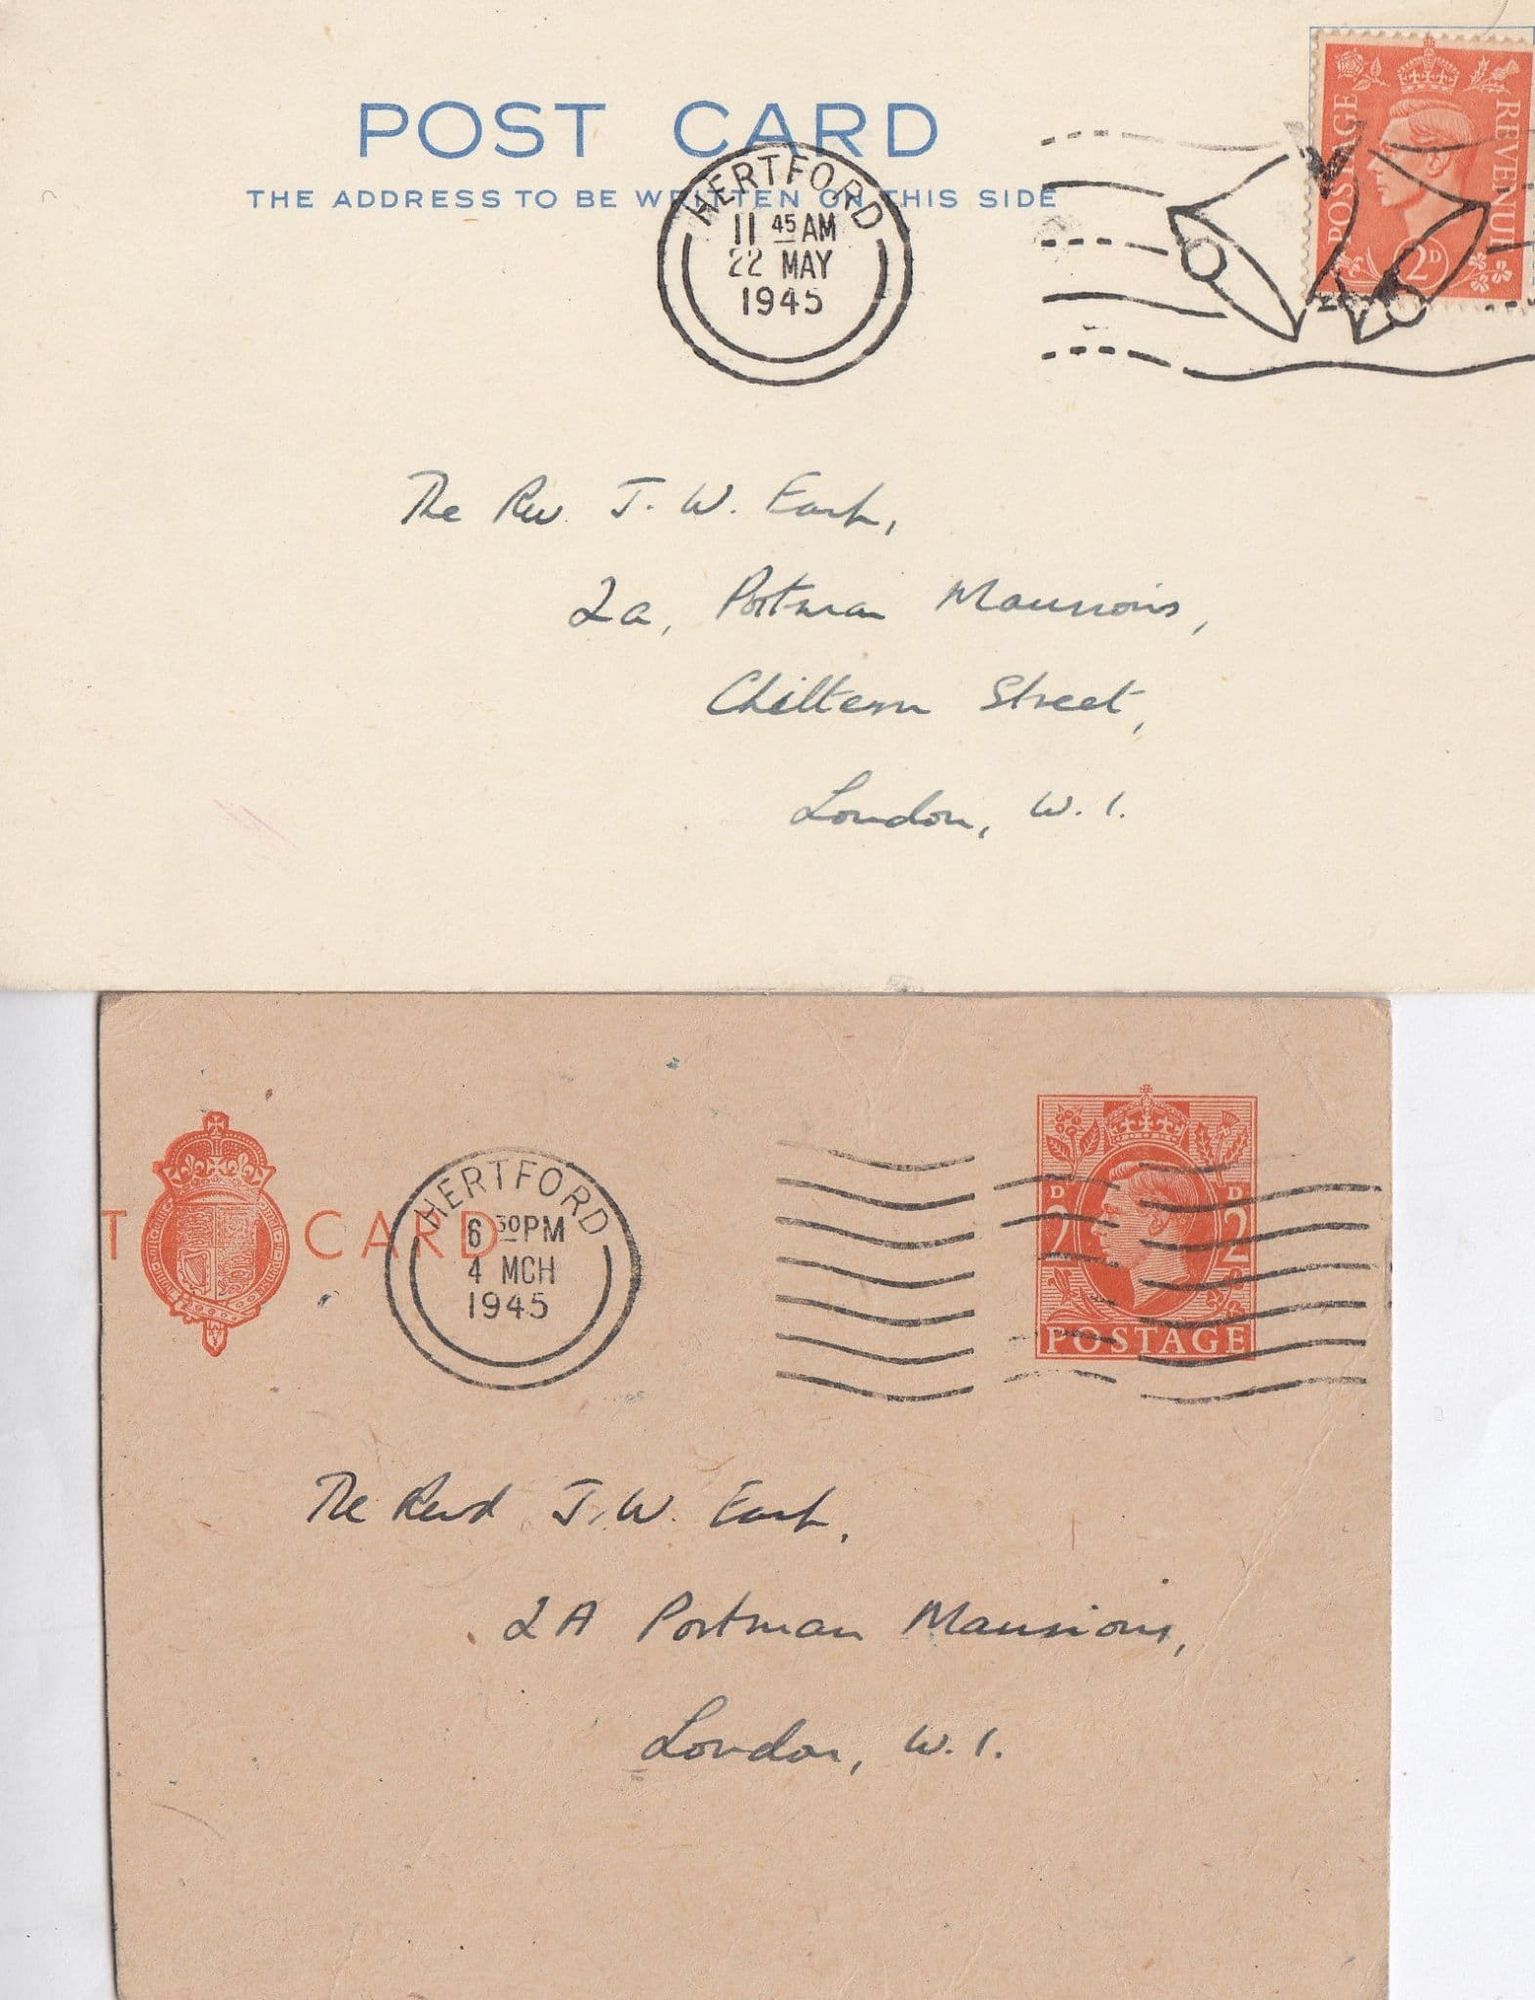 POST CARD
THE ADDRESS TO BE WRITTEN ON THIS SIDE
HERTFORD
11 45 AM
22 MAY
1945
POSTAGE
REVENUE
2D
The Rev. J. W. Earp,
2a, Portman Mansions,
Chiltern Street,
London, W. 1.
T CARD
HERTFORD
6 30 PM
4 MCH
1945
D D
2 2
POSTAGE
The Revd J. W. Earp.
2A Portman Mansions,
London, W. 1.